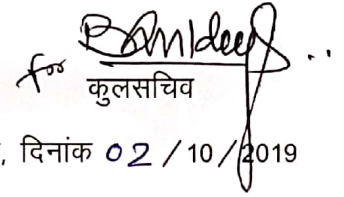 for
कुलसचिव
, दिनांक 02 / 10 / 2019